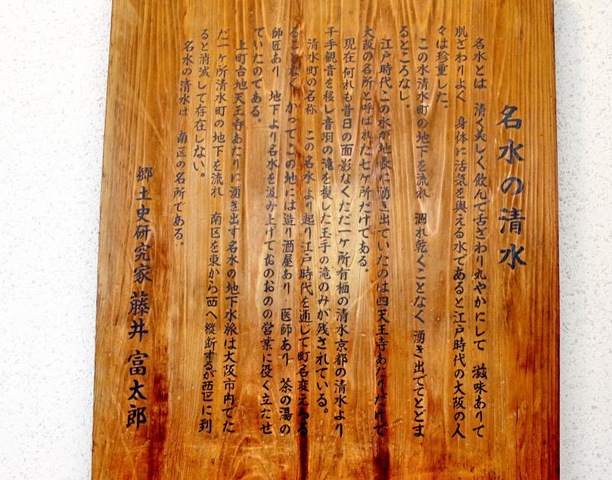 名水の清水
名水とは 清く美しく飲んで舌ざわり丸やかにして 滋味ありて
肌ざわりよく 身体に活気を與える水であると江戸時代の大阪の人
々は珍重した。
この水清水町の地下を流れ 涸れ乾くことなく 湧き出ててとどま
るところなし
江戸時代この水が地表に湧き出ていたのは四天王寺あたりだけで
大阪の名所と呼ばれた七ヶ所だけである。
現在何れも昔日の面影なくただ一ヶ所有栖の清水京都の清水より
千手観音を移し音羽の滝を模した玉手の滝のみが残されている。
清水町の名称 この名水より起り江戸時代を通じて町名変える
ことなく かってこの地には造り酒屋あり 医師あり 茶の湯の
師匠あり 地下より名水を汲み上げておのおのの営業に役く立たせ
ていたのである。
上町台地天王寺あたりに湧き出す名水の地下水脈は大阪市内でた
だ一ヶ所清水町の地下を流れ 南区を東から西へ縦断するが西区に到
ると消滅して存在しない。
名水の清水は 南区の名所である。
郷土史研究家 藤井 富太郎